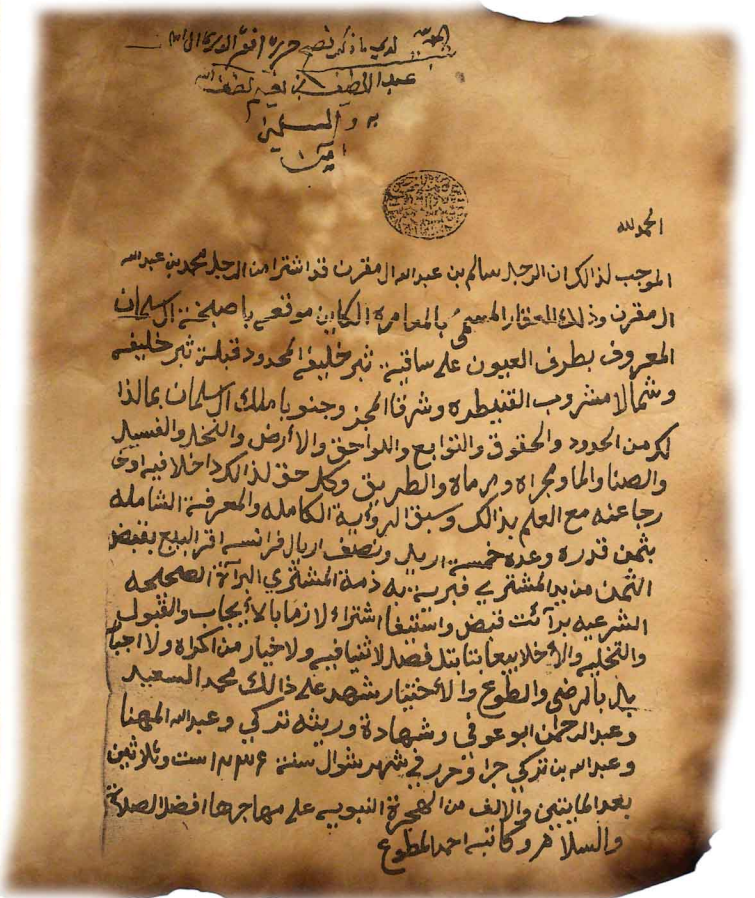 لدي ما ذكر نصح حرره افقر الورى الى الله
عبد اللطيف بن نعيم لطف الله
به والمسلمين
امين
الحمد لله
الموجب لذالك ان الرجل سالم بن عبد الله ال مقرن قد اشترا من الرجل محمد بن عبد الله
ال مقرن وذلك العقار المسمى بالعامره الكاين موقعه باصبخة ال سلمان
المعروف بطرف العيون على ساقية ثبر خليفه المحدود قبلة ثبر خليفه
وشمالا مشروب القنيطره وشرقا المجز وجنوبا ملك ال سلمان بمالذا
لك من الحدود والحقوق والتوابع واللواحق والأرض والنخل والفسيل
والصنا والما ومجراه ومرماه والطريق وكل حق لذالك داخلا فيه اوخا
رجا عنه مع العلم بذالك وسبق الرؤية الكامله والمعرفة الشامله
بثمن قدره وعده خمسة اريل ونصف اريال فرانسه اقر البيع بقبض
الثمن من يد المشتري فبرية به ذمة المشتري البرآة الصحيحه
الشرعيه برآئت قبض واستيفا اشتراء لازما بالأيجاب والقبول
والتخليه والأخلا بيعا بتا بتل فصل لا ثنيا فيه ولا خيار من اكراه ولا اجبا
بل بالرضى والطوع والأختيار شهد على ذالك محمد السعيد
وعبد الرحمن ابو عوفى وشهادة وريثه تركي وعبد الله المهنا
وعبد الله بن تركي جرا وحرر في شهر شوال سنة ١٢٣٦ ست وثلاثين
بعد المايتين والالف من الهجرة النبويه على مهاجرها افضل الصلاة
والسلام وكاتبه احمد المطوع